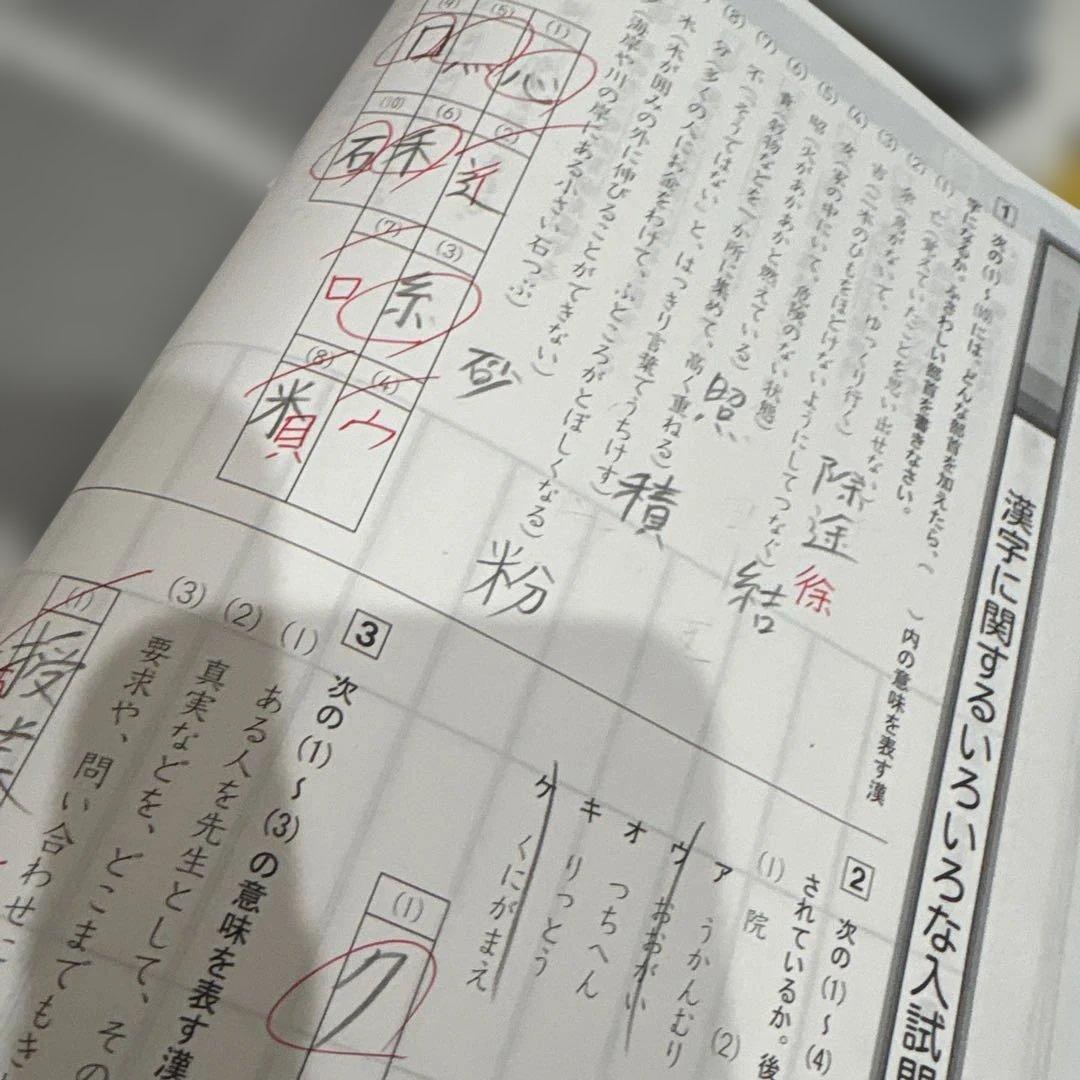 漢字に関するいろいろな入試問
1 次の(1)〜(10)には、どんな部首を加えたら、( )内の意味を表す漢
字になるか。ふさわしい部首を書きなさい。
(1) 亡(覚えていたことを思い出せない)
(2) 余(急がないで、ゆっくり行く)
(3) 吉(二本のひもをほどけないようにしてつなぐ)
(4) 女(家の中にいて、危険のない状態)
(5) 昭(火があかあかと燃えている)
(6) 責(穀物などを一か所に集めて、高く重ねる)
(7) 不(「そうではない」と、はっきり言葉でうちけす)
(8) 分(多くの人にお金をわけて、ふところがとぼしくなる)
木(木が囲みの外に伸びることができない)
(海岸や川の岸にある小さい石つぶ)
除
途
徐
結
照
積
粉
砂
(1) 心
(2) 辶
(3) 糸
(4) 宀
(5) 灬
(6) 禾
(7) 口
(8) 米 貝
(9) 口
(10) 石
2 次の(1)〜(4)
されているか。後
(1) 院
(2)
ア うかんむり
ウ おおがい
オ つちへん
キ りっとう
ケ くにがまえ
(1) ク
3 次の(1)〜(3)の意味を表す漢
(1) ある人を先生として、その
(2) 真実などを、どこまでもき
(3) 要求や、問い合わせに
(1) 授